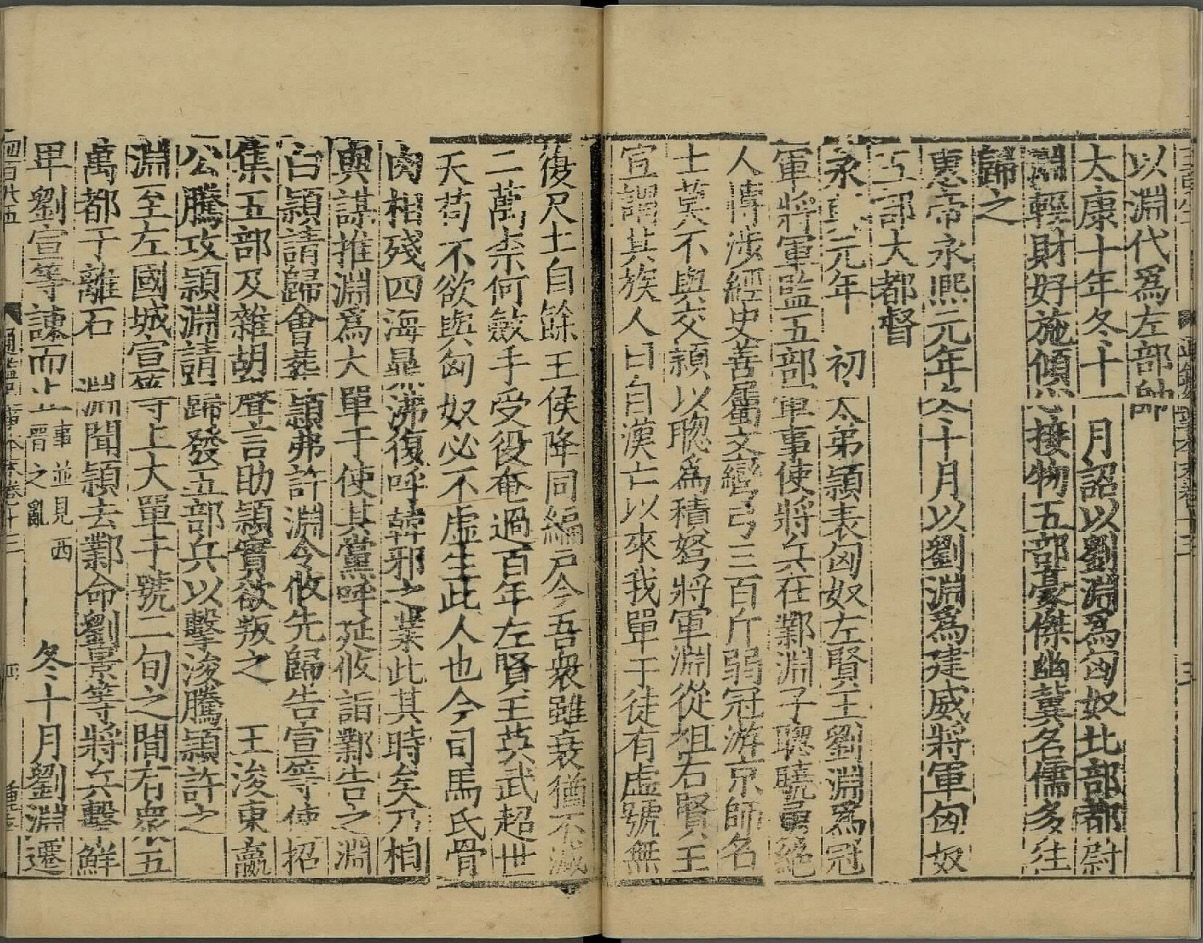 以淵代爲左部帥
太康十年冬十一月詔以劉淵爲匈奴北部都尉
淵輕財好施傾心接物五部豪傑幽冀名儒多往
歸之
惠帝永熙元年冬十月以劉淵爲建威將軍匈奴
五部大都督
永 元年 初太弟穎表匈奴左賢王劉淵爲冠
軍將軍監五部軍事使將兵在鄴淵子聰驍勇絕
人博涉經史善屬文彎弓三百斤弱冠游京師名
士莫不與交穎以聰爲積弩將軍淵從祖右賢王
宣謂其族人曰自漢亡以來我單于徒有虛號無
復尺土自餘王侯降同編戶今吾衆雖衰猶不減
二萬柰何斂手受役奄過百年左賢王英武超世
天苟不欲興匈奴必不虛生此人也今司馬氏骨
肉相殘四海鼎沸復呼韓邪之業此其時矣乃相
與謀推淵爲大單于使其黨呼延攸詣鄴告之淵
白穎請歸會葬穎弗許淵令攸先歸告宣等使招
集五部及雜胡聲言助穎實欲叛之 王浚東嬴
公騰攻穎淵請歸發五部兵以擊浚騰穎許之
淵至左國城宣等上大單于號二旬之間有衆五
萬都于離石 淵聞穎去鄴命劉景等將兵擊鮮
卑劉宣等諫而止事並見西晉之亂 冬十月劉淵遷